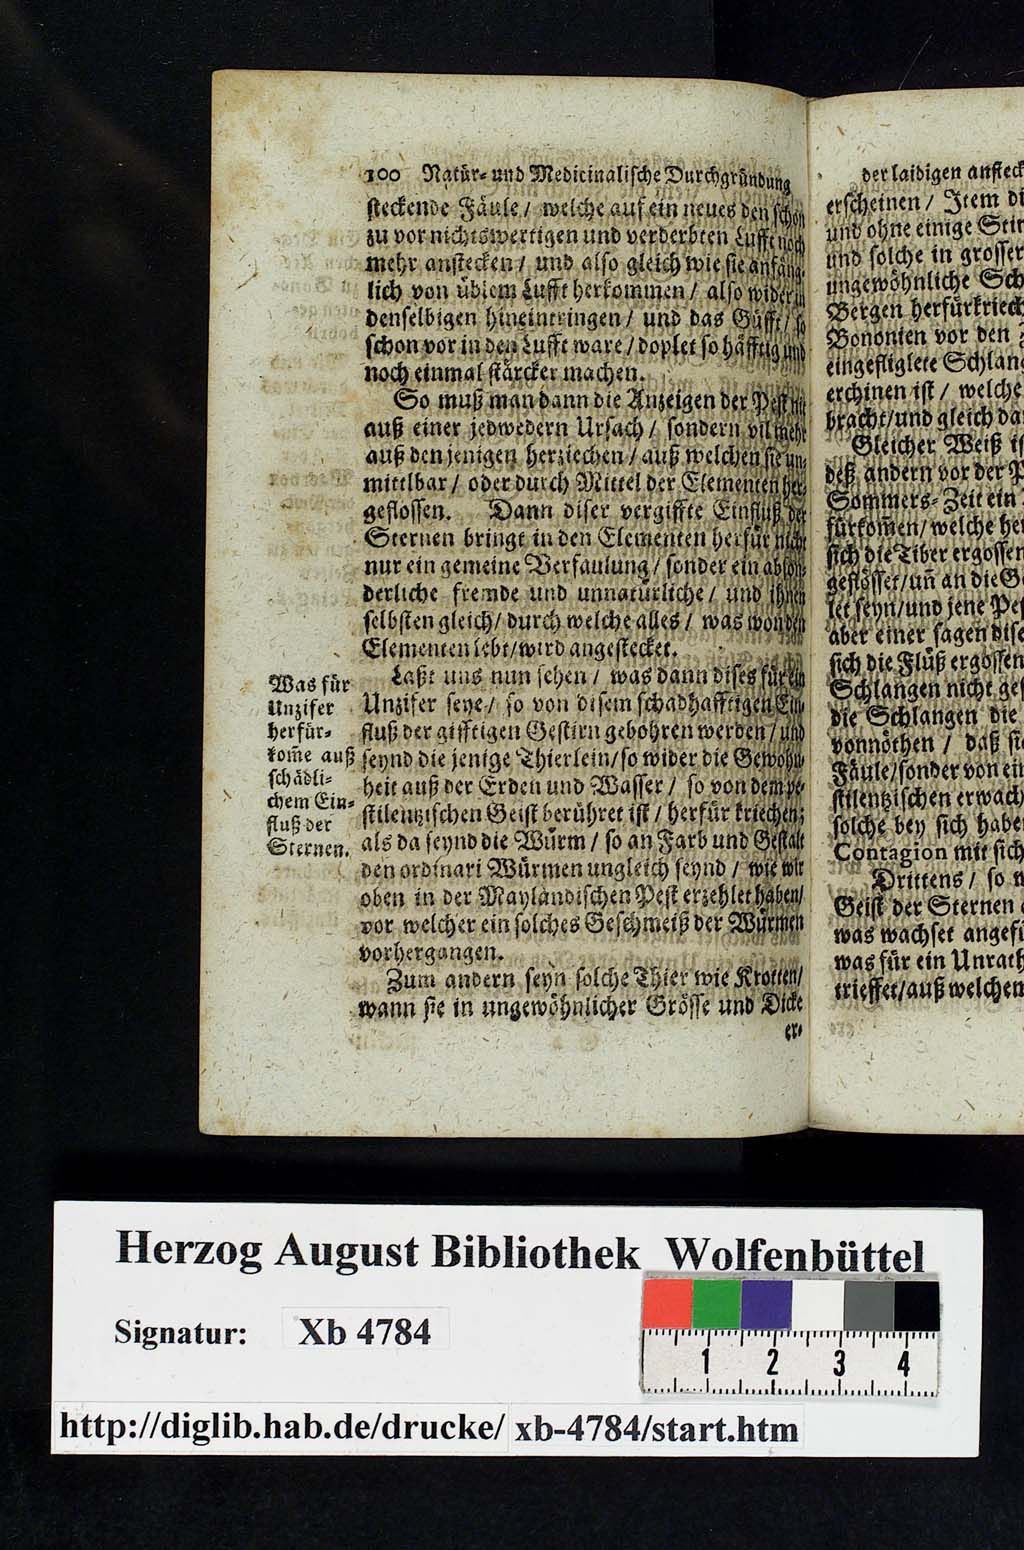 100 Natür- und Medicinalische Durchgründung
steckende Fäule / welche auf ein neues den schon
zu vor nichtswertigen und verderbten Lufft noch
mehr anstecken / und also gleich wie sie anfäng-
lich von üblem Lufft herkommen / also wider in
denselbigen hineintringen / und das Gifft / so
schon vor in den Lufft ware / doplet so häfftig und
noch einmal stärcker machen.
So muß man dann die Anzeigen der Pest nit
auß einer jedwedern Ursach / sondern vil mehr
auß den jenigen herziechen / auß welchen sie un-
mittlbar / oder durch Mittel der Elementen her-
geflossen. Dann diser vergiffte Einfluß der
Sternen bringt in den Elementen herfür nicht
nur ein gemeine Verfaulung / sonder ein abson-
derliche fremde und unnatürliche / und ihnen
selbsten gleich / durch welche alles / was von den
Elementen lebt / wird angestecket.
Laßt uns nun sehen / was dann dises für ein
Unzifer seye / so von disem schadhafftigen Ein-
fluß der gifftigen Gestirn gebohren werden / und
seynd die jenige Thierlein / so wider die Gewohn-
heit auß der Erden und Wasser / so von dem pe-
stilentzischen Geist berühret ist / herfür kriechen;
als da seynd die Würm / so an Farb und Gestalt
den ordinari Würmen ungleich seynd / wie wir
oben in der Mayländischen Pest erzehlet haben /
vor welcher ein solches Geschmeiß der Würmen
vorhergangen.
Zum andern seyn solche Thier wie Krotten /
wann sie in ungewöhnlicher Grösse und Dicke
er-
Was für
Unzifer
herfür-
kom̃e auß
schädli-
chem Ein-
fluß der
Sternen.
der laidigen ansteck
erscheinen / Item di
und ohne einige Stir
und solche in grosser
ungewöhnliche Sch
Bergen herfürkriech
Bononien vor den
eingefliglete Schlang
erchinen ist / welche
bracht / und gleich da
Gleicher Weiß is
deß andern vor der P
Sommers-Zeit ein
fürkom̃en / welche her
sich die Tiber ergossen
geflösset / uñ an die Ge
let seyn / und jene Pes
aber einer sagen dise
sich die Flüß ergossen
Schlangen nicht ges
die Schlangen die
vonnöthen / daß sie
Fäule / sonder von ein
stilentzischen erwach
solche bey sich haben
Contagion mit sich
Drittens / so w
Geist der Sternen
was wachset angefü
was für ein Unrath
trieffet / auß welchen
Herzog August Bibliothek Wolfenbüttel
Signatur: Xb 4784
1 2 3 4
http://diglib.hab.de/drucke/ xb-4784/start.htm